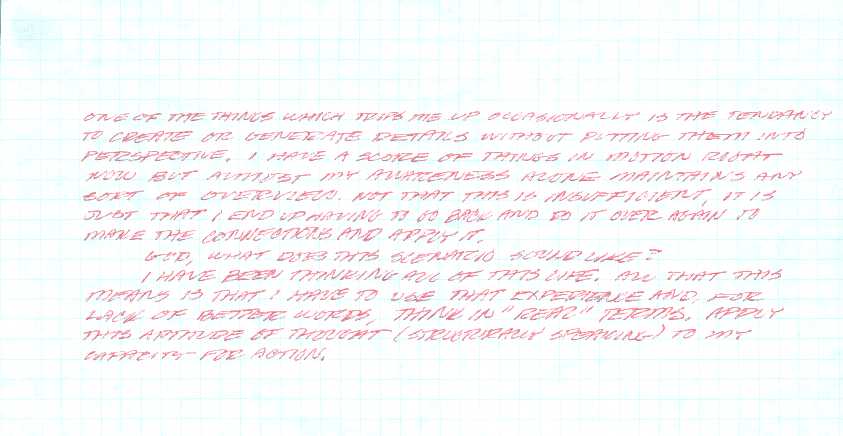 ONE OF THE THINGS WHICH TRIPS ME UP OCCASIONALLY IS THE TENDANCY
TO CREATE OR GENERATE DETAILS WITHOUT PUTTING THEM INTO
PERSPECTIVE. I HAVE A SCORE OF THINGS IN MOTION RIGHT
NOW BUT ALMOST MY AWARENESS ALONE MAINTAINS ANY
SORT OF OVERVIEW. NOT THAT THIS IS INSUFFICIENT, IT IS
JUST THAT I END UP HAVING TO GO BACK AND DO IT OVER AGAIN TO
MAKE THE CONNECTIONS AND APPLY IT.
GOD, WHAT DOES THIS SCENARIO SOUND LIKE?
I HAVE BEEN THINKING ALL OF THIS LIFE. ALL THAT THIS
MEANS IS THAT I HAVE TO USE THAT EXPERIENCE AND, FOR
LACK OF BETTER WORDS, THINK IN "REAL" TERMS. APPLY
THIS APTITUDE OF THOUGHT (STRUCTURALLY SPEAKING) TO MY
CAPACITY FOR ACTION.